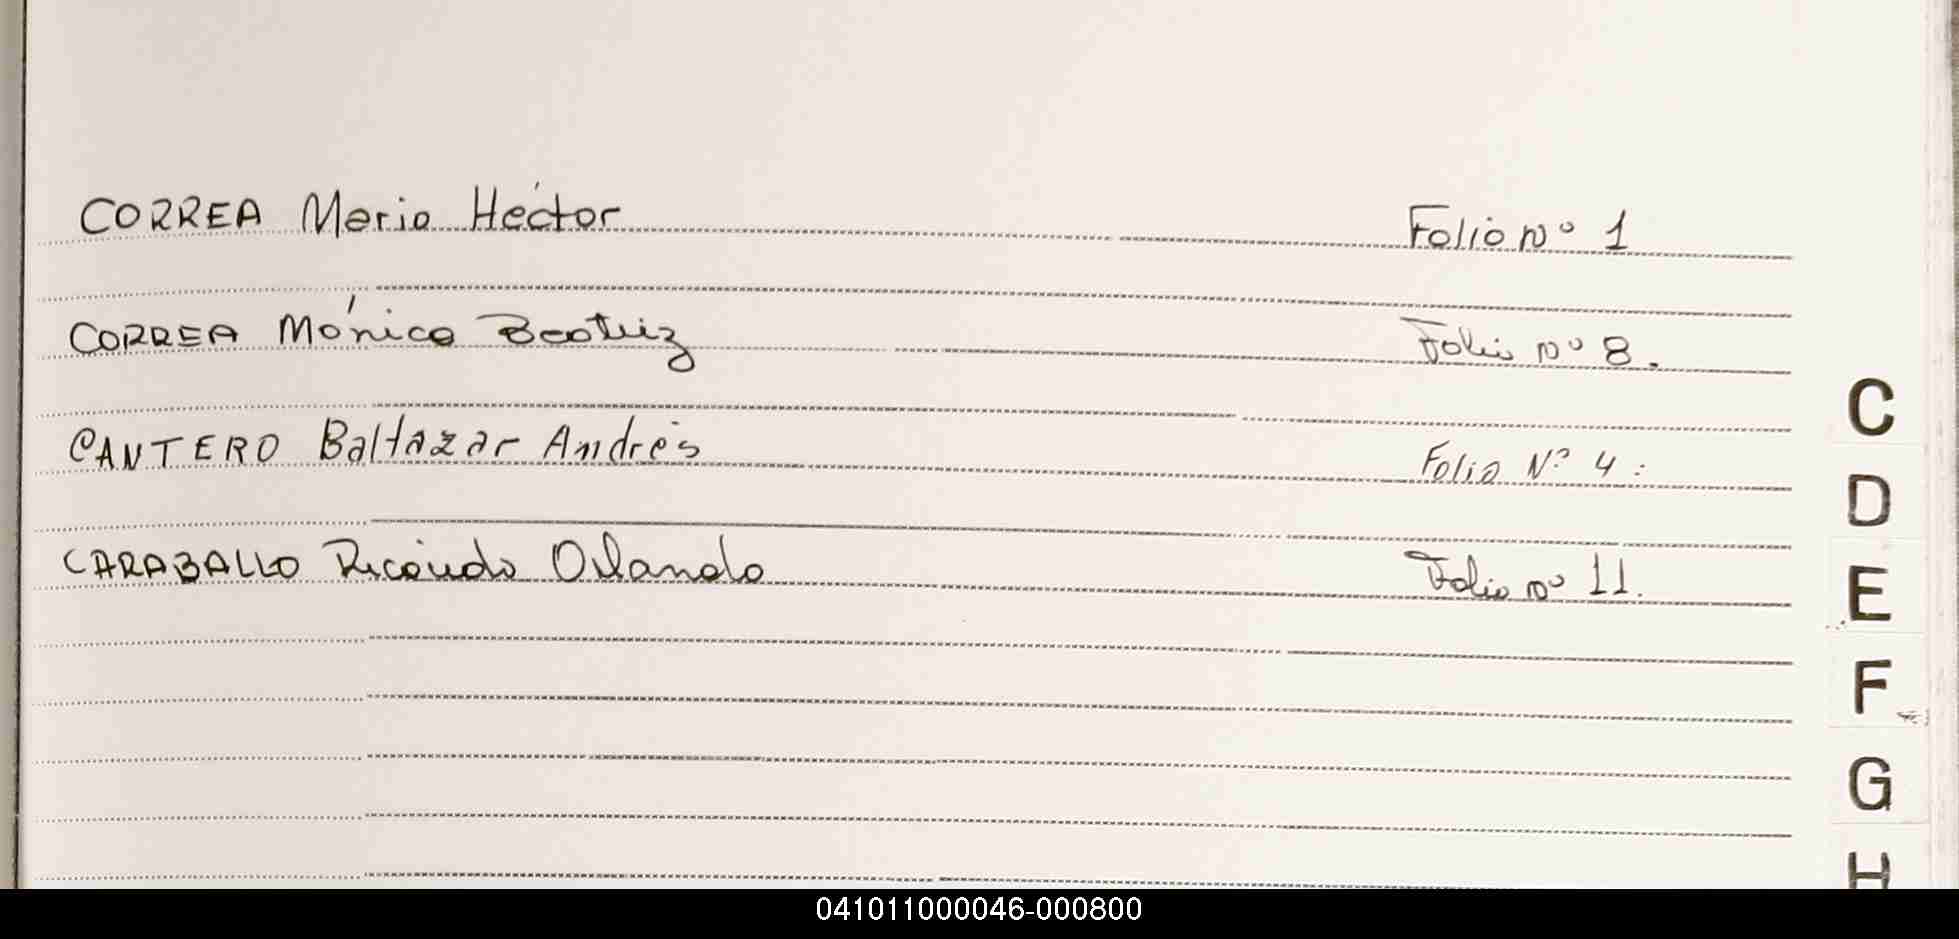 CORREA Mario Héctor Folio nº 1
CORREA Mónica Beatriz Folio nº 8.
CANTERO Baltazar Andrés Folio Nº 4.
CARABALLO Ricardo Orlando Folio nº 11.
C
D
E
F
G
H
041011000046-000800